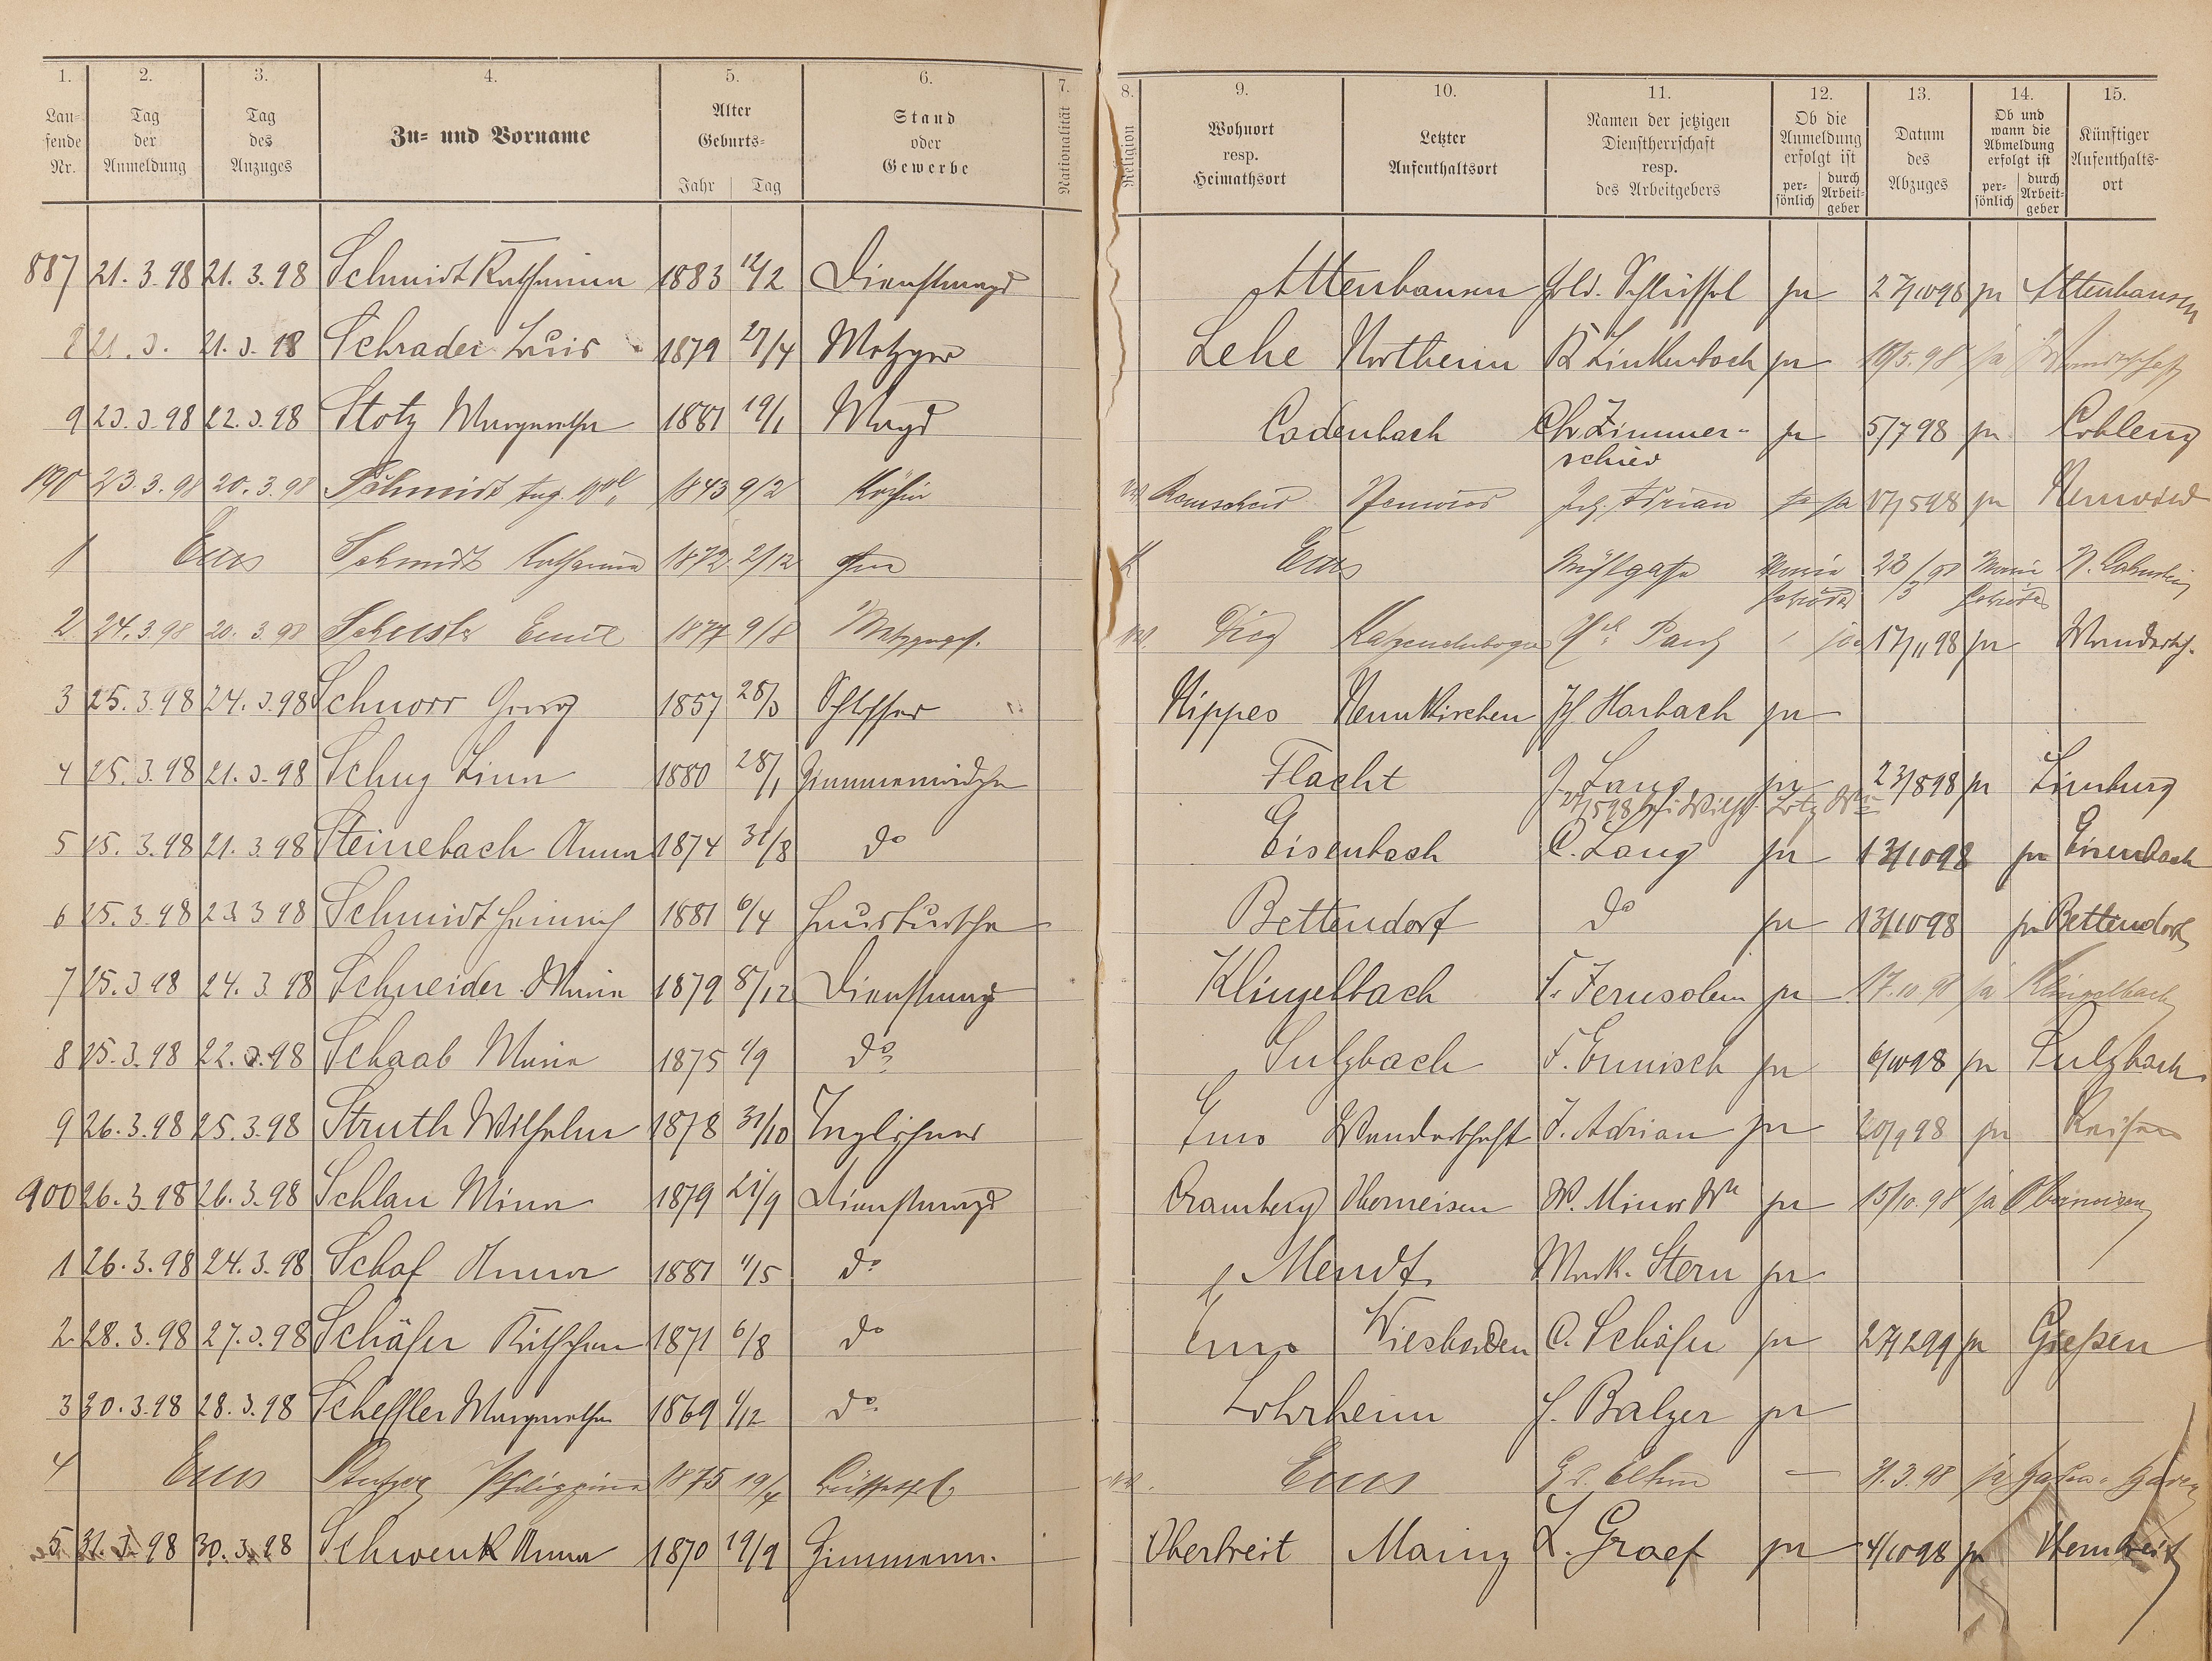 1. 2. 3. 4. 5. 6. 7. 8. 9. 10. 11. 12. 13. 14. 15.
Lau-
fende
Nr.
Tag
der
Anmeldung
Tag
des
Anzuges
Zu- und Vorname
Alter
Geburts-
Jahr Tag
Stand
oder
Gewerbe
Nationalität
Religion
Wohnort
resp.
Heimathsort
Letzter
Aufenthaltsort
Namen der jetzigen
Dienstherrschaft
resp.
des Arbeitgebers
Ob die
Anmeldung
erfolgt ist
per-
sönlich
durch
Arbeit-
geber
Datum
des
Abzuges
Ob und
wann die
Abmeldung
erfolgt ist
per-
sönlich
durch
Arbeit-
geber
Künftiger
Aufenthalts-
ort
887 21.3.98 21.3.98 Schmidt Katharina 1883 12/2 Dienstmagd Attenhausen ja 27/10 98 ja Attenhausen
8 21.3. 21.3.98 Schrader Louis 1879 27/4 Metzger Lehe Northeim R Linkenbach ja 18/5.98 ja
9 23.3.98 22.3.98 Stotz Margaretha 1881 19/1 Magd Cadenbach Chr. Zimmer- ja 5/7 98 ja Coblenz
schied
890 23.3.98 20.3.98 Schmidt Aug. 1843 9/2 Köchin Remscheid Neuwied Adrian ja 17/5 98 ja Neuwied
1 Ems Schmidt Katharina 1872 2/12 K Ems Mühlgasse Marie 23/3 98 Marie
Schröder Schröder
2 24.3.98 20.3.98 Schuster Emil 1877 9/8 Metzgerges. Diez Katzenelnbogen ja 17/11 98 ja Wandersch.
3 25.3.98 24.3.98 Schnorr Georg 1857 28/3 Schlosser Nippes Neunkirchen Harbach ja
4 25.3.98 21.3.98 Schug Lina 1880 28/1 Zimmermädchen Flacht J. Lang ja 23/8 98 ja Limburg
5 25.3.98 21.3.98 Steinebach Anna 1874 31/8 do Eisenbach C. Lang ja 13/10 98 ja Eisenbach
6 25.3.98 23.3.98 Schmidt Heinrich 1881 6/4 Hausbursche Bettendorf do ja 13/10 98 ja Bettendorf
7 25.3.98 24.3.98 Schneider Maria 1879 8/12 Dienstmagd Klingelbach F. Jerusalem ja 17.10.98 ja Klingelbach
8 25.3.98 22.3.98 Schaab Maria 1875 1/9 do Sulzbach F. Ermisch ja 6/10 98 ja Sulzbach
9 26.3.98 25.3.98 Struth Wilhelm 1878 31/10 Taglöhner Ems Wanderschaft J. Adrian ja 20/9 98 ja
900 26.3.98 26.3.98 Schlau Mina 1879 21/9 Dienstmagd Cramberg Oberneisen W. Minor Ww ja 15/10.98 ja Oberneisen
1 26.3.98 24.3.98 Schaf Anna 1881 1/5 do Mendt Mark. Stern ja
2 28.3.98 27.3.98 Schäfer Käthchen 1871 6/8 do Ems Wiesbaden C. Schäfer ja 27/2 99 ja Gießen
3 30.3.98 28.3.98 Scheffler Margaretha 1869 1/12 do Lohrheim H. Balzer ja
4 Ems Philippine 1875 19/4 Büffetfl. Ems — 31.3.98 ja
5 31.3.98 30.3.98 Schwenk Anna 1870 19/9 Zimmerm. Obertreit Mainz L. Graef ja 4/10 98 ja